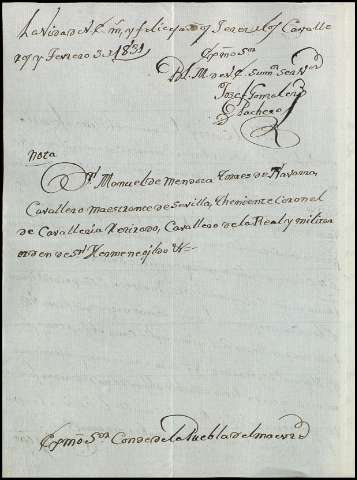 la vida de V. E. m. y felices a. Jerez de los Cavalle
ros y Fevrero 3 de 1831
Exmo Sor
B. L. M. de V. E. su mr. servor
Josef Gonzalez
Pacheco
Nota
Dn. Manuel de Mendoza Torres de Navarra,
Cavallero maestrante de Sevilla, theniente Coronel
de Cavalleria Retirado, Cavallero de la Real y militar
orden de Sn. Hermenegildo &
Exmo Sor Conde de la Puebla del maestre